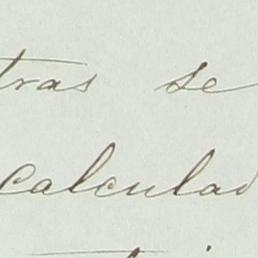 tras se
calculad